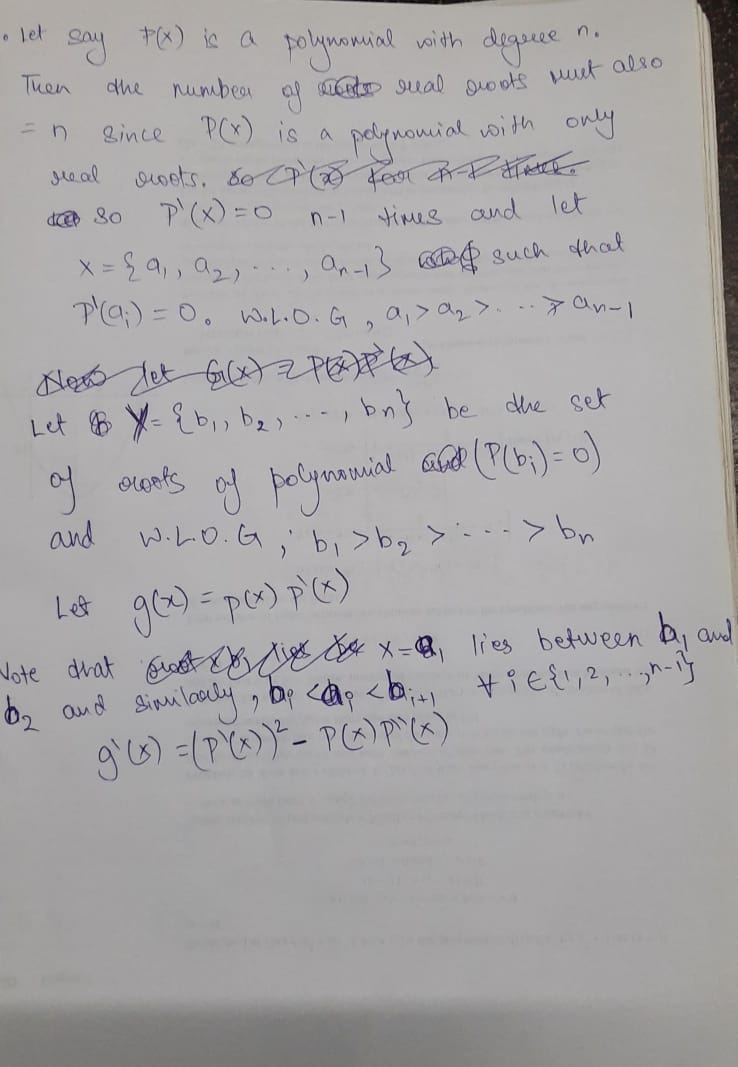 • Let say P(x) is a polynomial with degree n.
Then the number of real roots must also
= n since P(x) is a polynomial with only
real roots.
So P'(x) = 0 n-1 times and let
x = {a₁, a₂, ..., aₙ₋₁} such that
P'(aᵢ) = 0. W.L.O.G, a₁ > a₂ > ... > aₙ₋₁
Now let G(x) = P(x)P'(x)
Let Y = {b₁, b₂, ..., bₙ} be the set
of roots of polynomial (P(bᵢ) = 0)
and W.L.O.G, b₁ > b₂ > ... > bₙ
Let g(x) = p(x) p'(x)
Note that x = a₁ lies between b₁ and
b₂ and similarly, bᵢ < aᵢ < bᵢ₊₁ ∀ i ∈ {1, 2, ..., n-1}
g'(x) = (P'(x))² - P(x)P''(x)